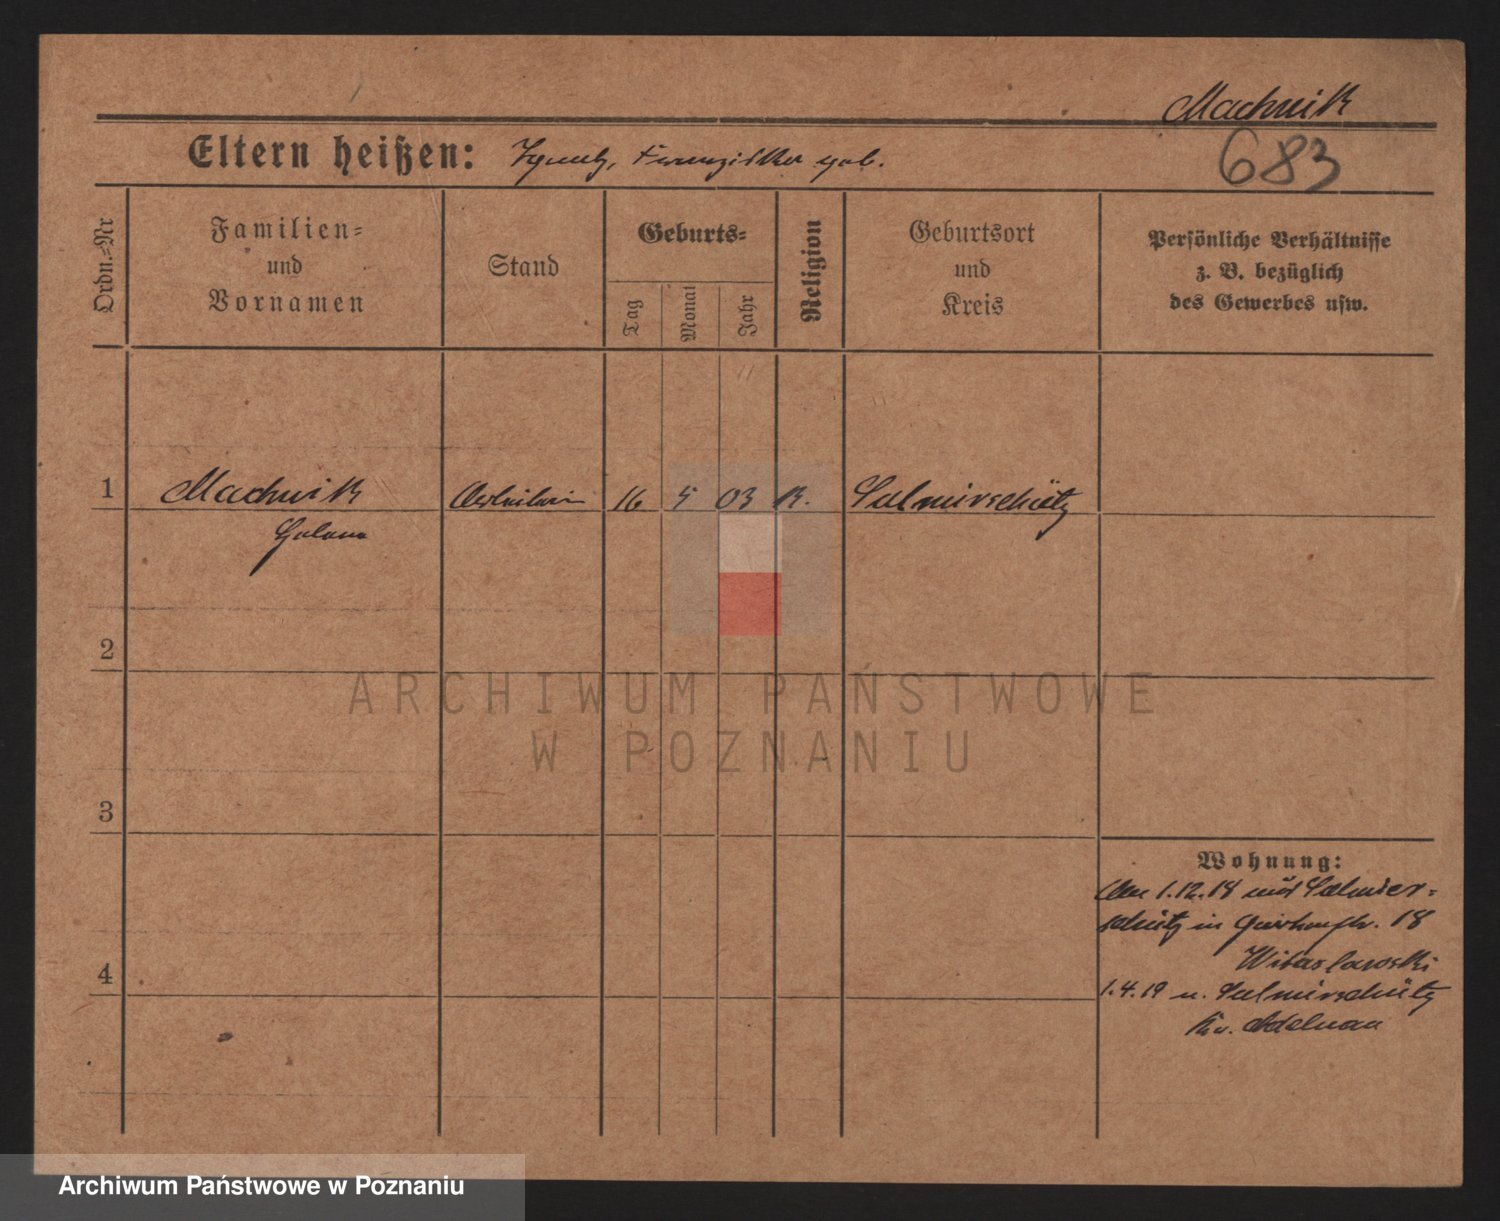 Machnik
683
Eltern heißen: Ignatz, Franziska geb.
Ordn.-Nr
Familien-
und
Vornamen
Stand
Geburts-
Tag
Monat
Jahr
Religion
Geburtsort
und
Kreis
Persönliche Verhältnisse
z. B. bezüglich
des Gewerbes usw.
1 Machnik Arbeiterin 16 5 03 K. Sulmirschütz
Helena
2
3
4
Wohnung:
Am 1.12.18 aus Sulmier-
schütz in 18
Witaslawski
1.4.19 n. Sulmirschütz
Kr. Adelnau
ARCHIWUM PAŃSTWOWE
W POZNANIU
Archiwum Państwowe w Poznaniu